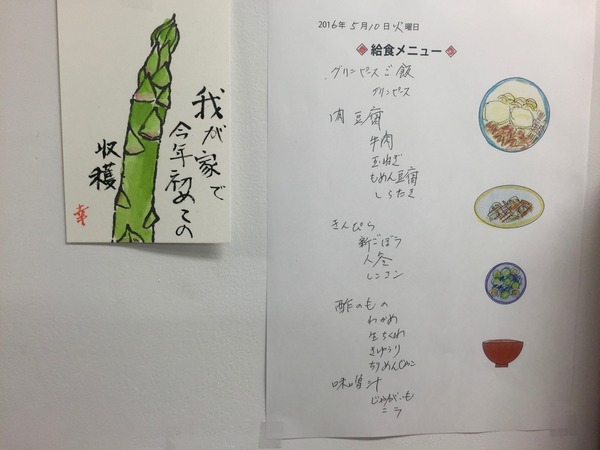 我が家で
今年初めての
収穫
幸
2016年 5月10日火曜日
給食メニュー
グリンピースご飯
グリンピース
肉豆腐
牛肉
玉ねぎ
もめん豆腐
しらたき
きんぴら
新ごぼう
人参
レンコン
酢のもの
わかめ
生ちくわ
きゅうり
ちりめんじゃこ
味噌汁
じゃがいも
ニラ